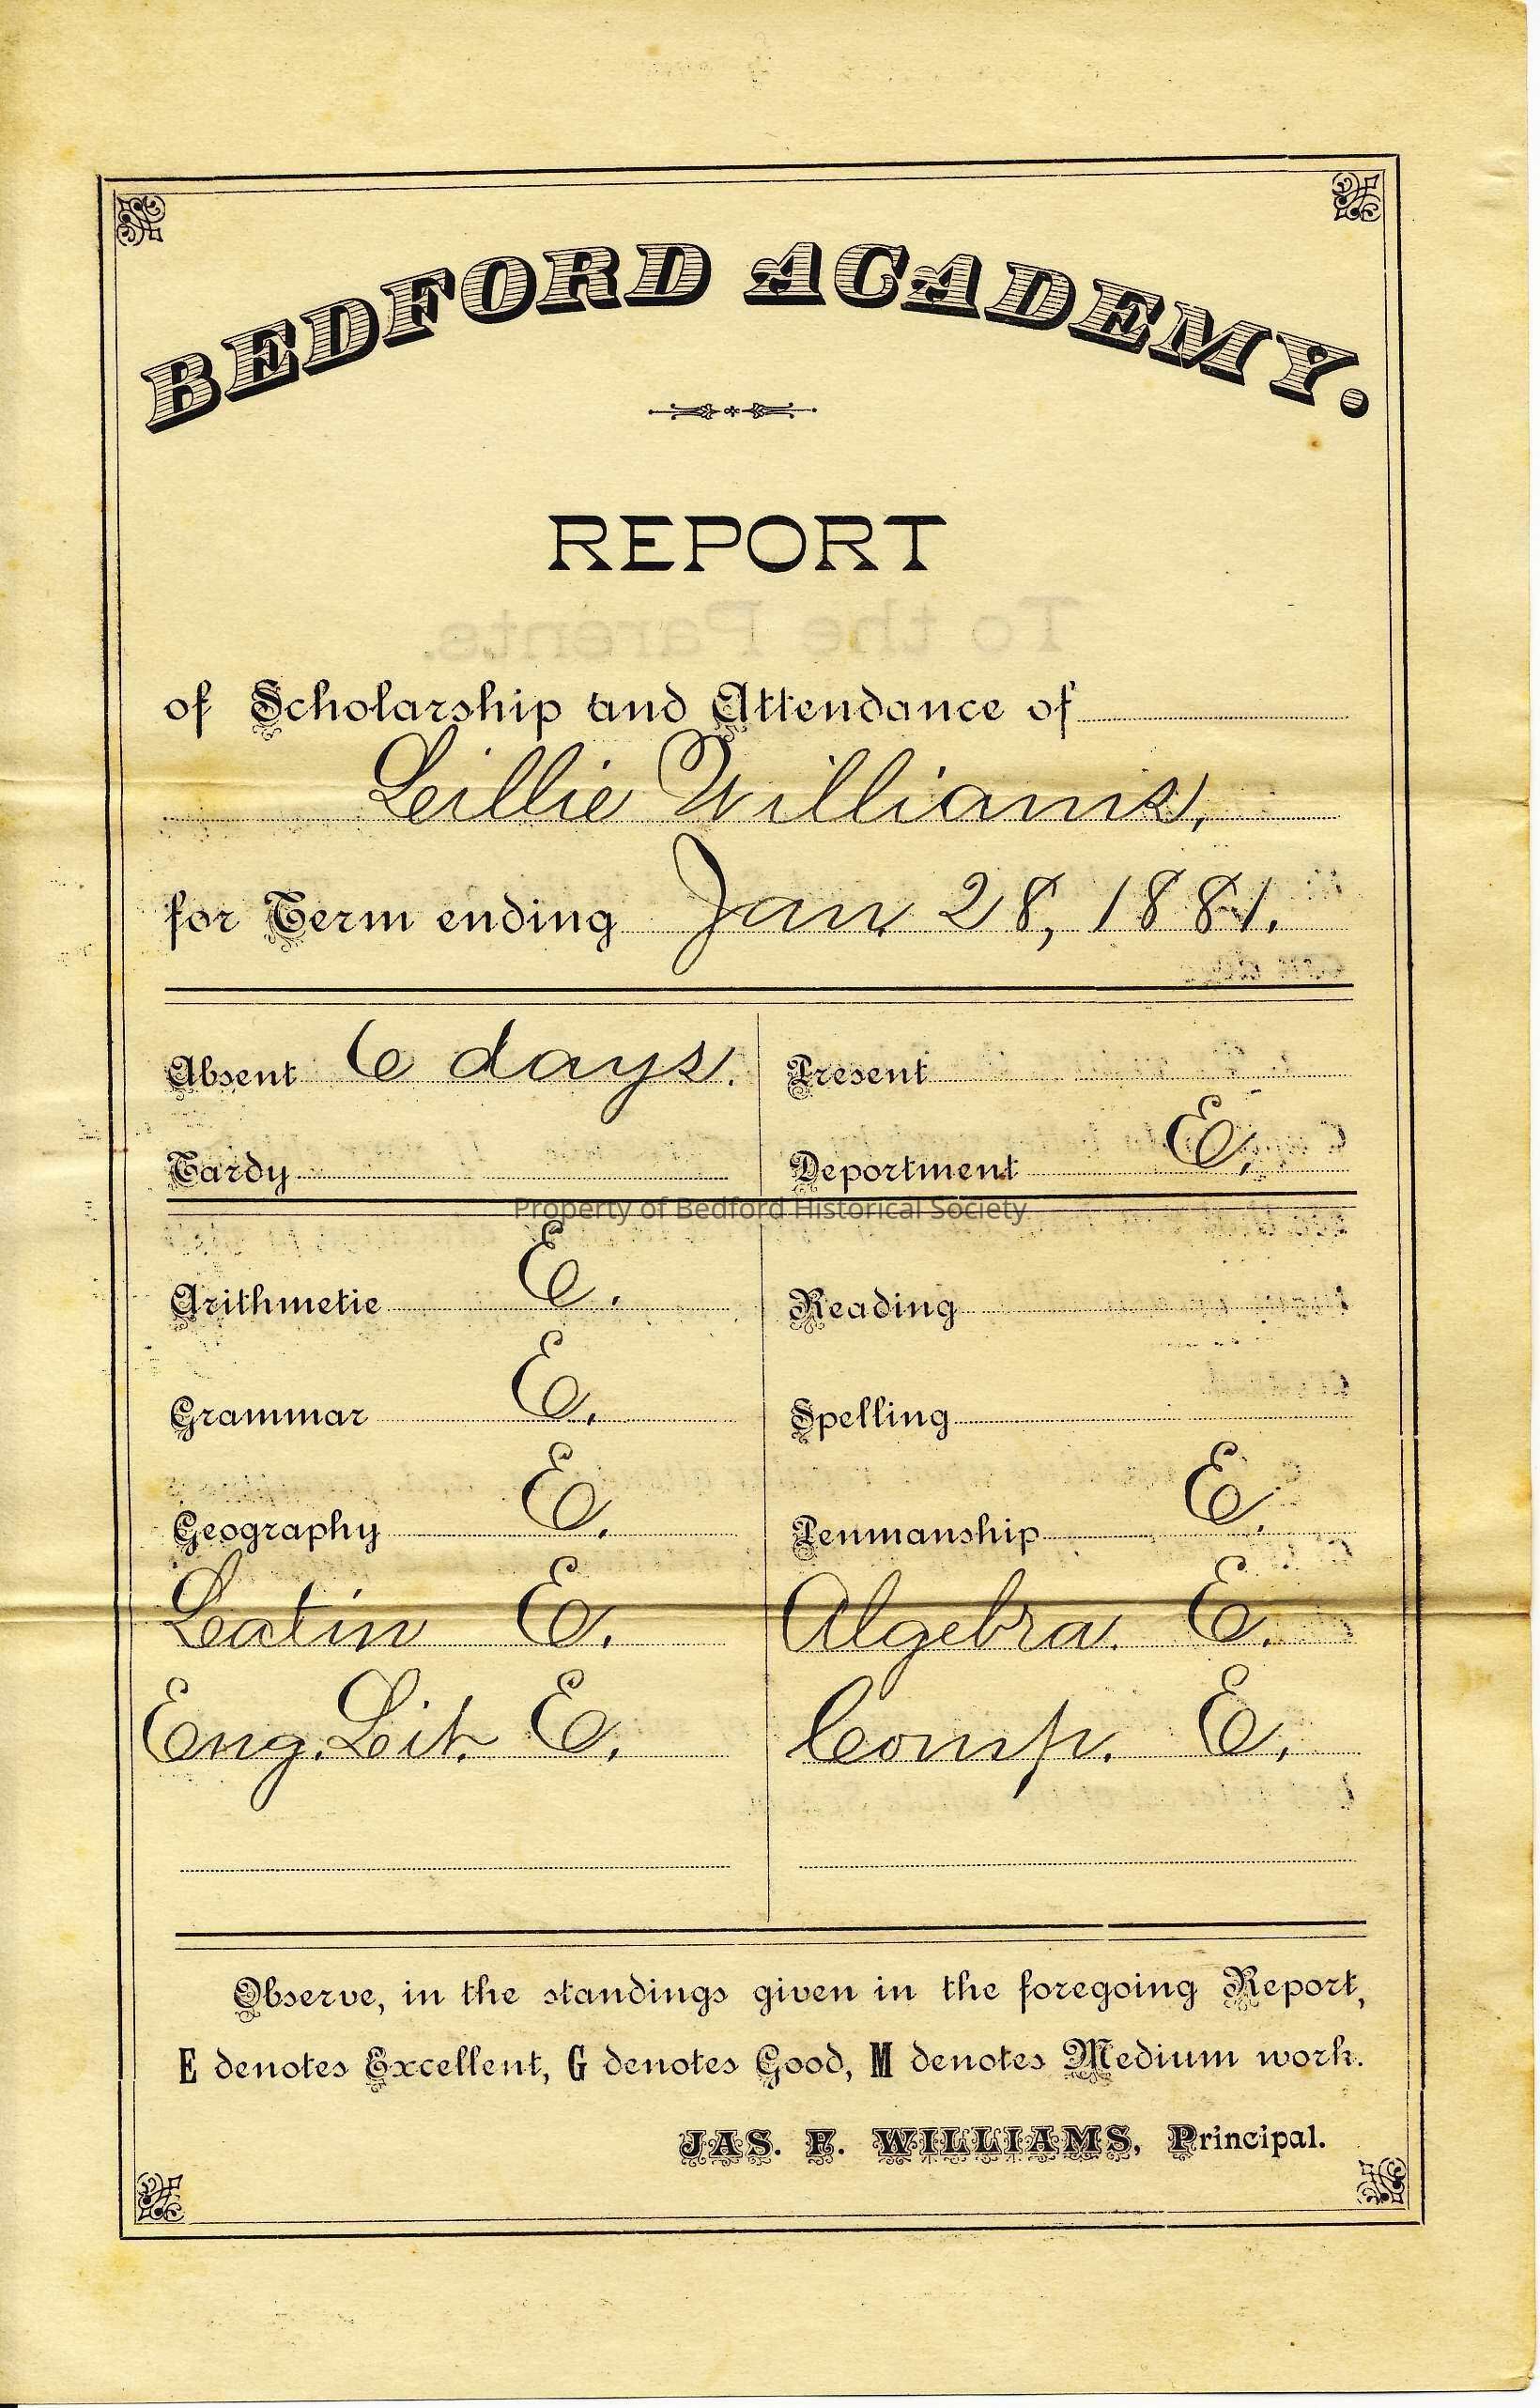 BEDFORD ACADEMY.
REPORT
of Scholarship and Attendance of
Lillie Williams,
for Term ending Jan. 28, 1881.
Absent 6 days. Present
Tardy Deportment E.
Property of Bedford Historical Society
Arithmetic E. Reading
Grammar E. Spelling
Geography E. Penmanship E.
Latin E. Algebra. E.
Eng. Lit. E. Comp. E.
Observe, in the standings given in the foregoing Report,
E denotes Excellent, G denotes Good, M denotes Medium work.
JAS. F. WILLIAMS, Principal.